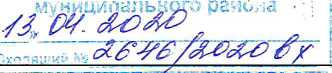 муниципального района
13.04.2020
Входящий № 2646/2020вх